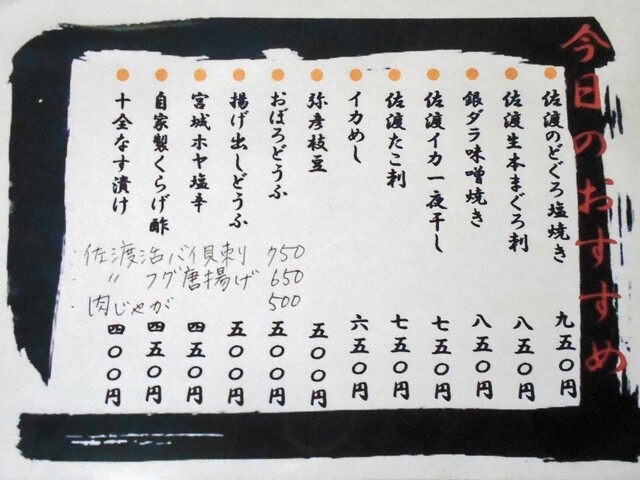 今日のおすすめ
佐渡のどぐろ塩焼き 九五〇円
佐渡生本まぐろ刺 八五〇円
銀ダラ味噌焼き 八五〇円
佐渡イカ一夜干し 七五〇円
佐渡たこ刺 七五〇円
イカめし 六五〇円
弥彦枝豆 五〇〇円
おぼろどうふ 五〇〇円
揚げ出しどうふ 五〇〇円
宮城ホヤ塩辛 四五〇円
自家製くらげ酢 四五〇円
十全なす漬け 四〇〇円
佐渡活バイ貝刺 750
〃 フグ唐揚げ 650
肉じゃが 500